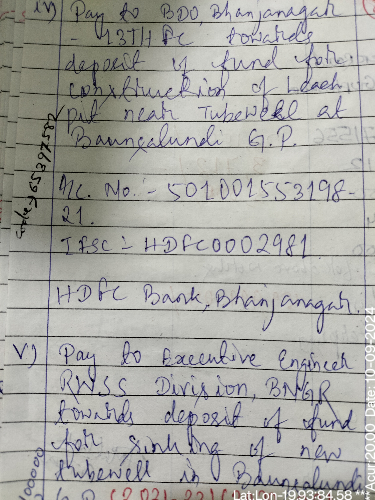 iv) Pay to BDO, Bhanjanagar
- 13TH FC towards
deposit of fund for
construction of Leach
pit near Tubewell at
Baungalundi G.P.
A/c. No. - 501001553198-
21.
IFSC - HDFC0002981
HDFC Bank, Bhanjanagar.
v) Pay to Executive Engineer
RWSS Division, BNGR
towards deposit of fund
for sinking of new
tubewell in Baungalundi
Lat:Lon-19.93:84.58
Date:10-09-2024